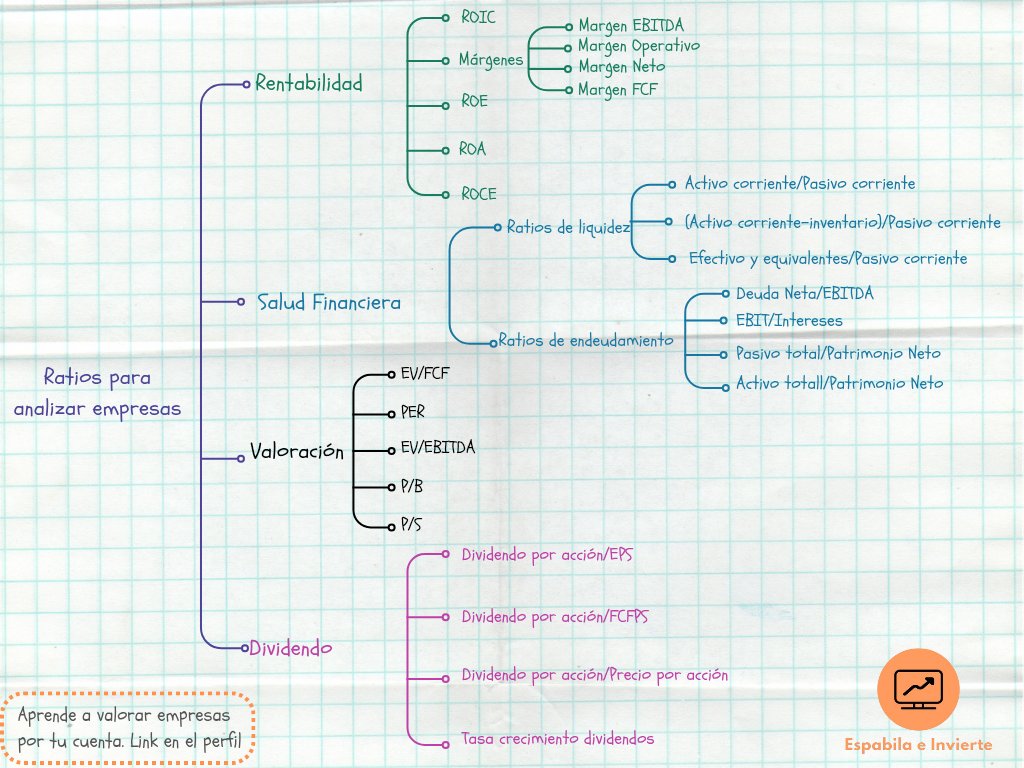 Ratios para
analizar empresas
Rentabilidad
ROIC
Márgenes
Margen EBITDA
Margen Operativo
Margen Neto
Margen FCF
ROE
ROA
ROCE
Salud Financiera
Ratios de liquidez
Activo corriente/Pasivo corriente
(Activo corriente-inventario)/Pasivo corriente
Efectivo y equivalentes/Pasivo corriente
Ratios de endeudamiento
Deuda Neta/EBITDA
EBIT/Intereses
Pasivo total/Patrimonio Neto
Activo totall/Patrimonio Neto
Valoración
EV/FCF
PER
EV/EBITDA
P/B
P/S
Dividendo
Dividendo por acción/EPS
Dividendo por acción/FCFPS
Dividendo por acción/Precio por acción
Tasa crecimiento dividendos
Aprende a valorar empresas
por tu cuenta. Link en el perfil
Espabila e Invierte